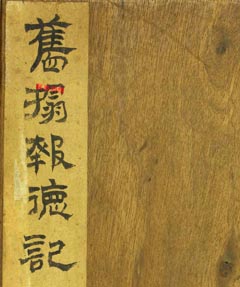 舊搨報德記